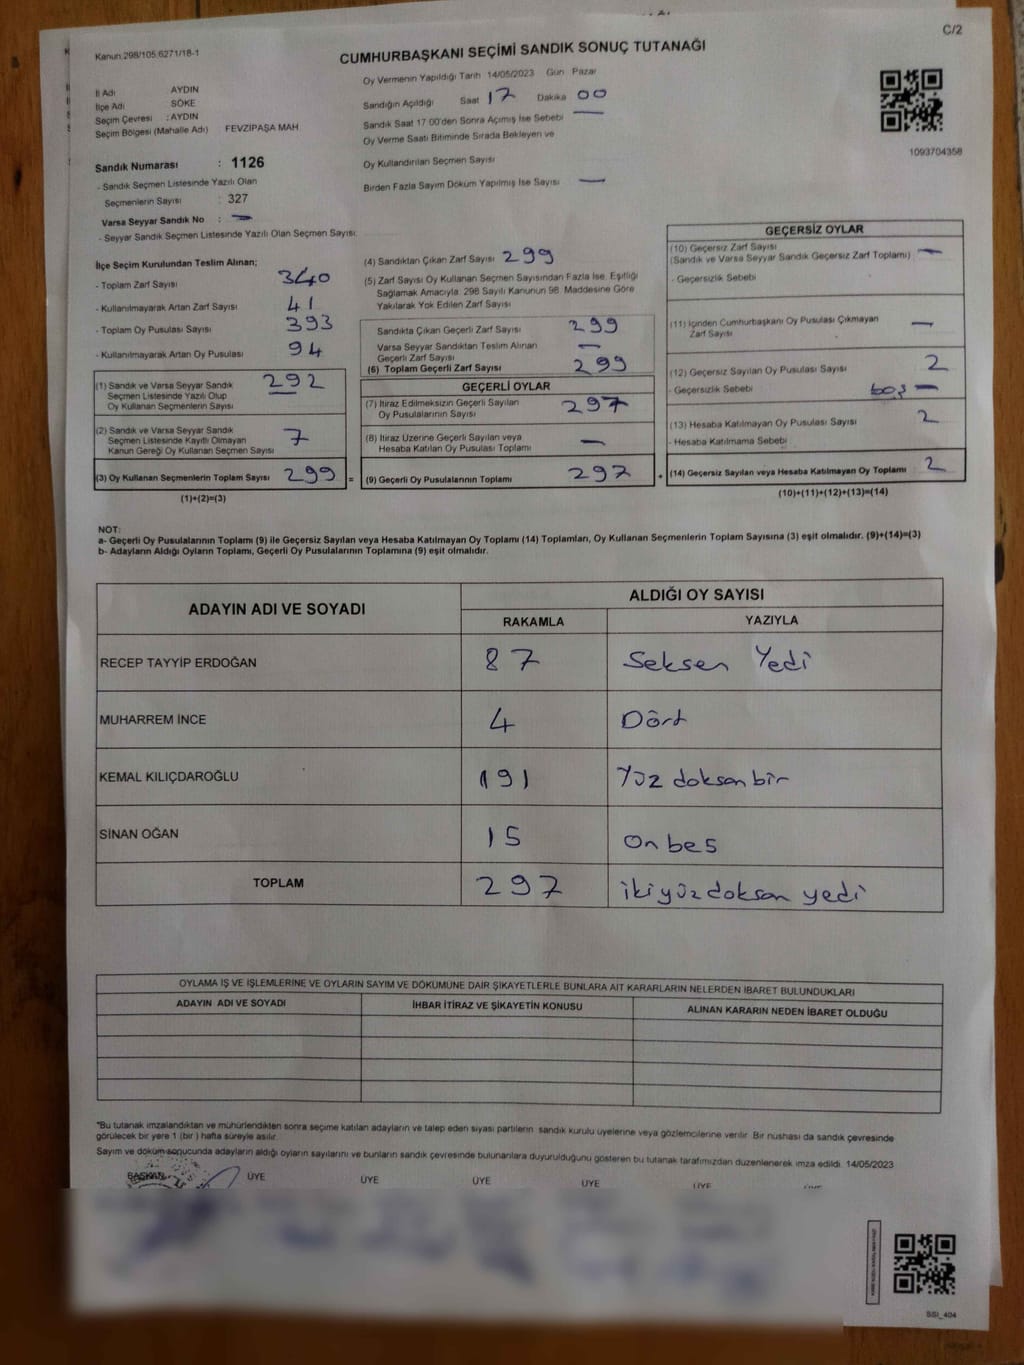 C/2
Kanun.298/105,6271/18-1
CUMHURBAŞKANI SEÇİMİ SANDIK SONUÇ TUTANAĞI
İl Adı AYDIN
İlçe Adı SÖKE
Seçim Çevresi : AYDIN
Seçim Bölgesi (Mahalle Adı) FEVZİPAŞA MAH.
Oy Vermenin Yapıldığı Tarih 14/05/2023 Gün Pazar
Sandığın Açıldığı Saat 17 Dakika 00
Sandık Saat 17:00'den Sonra Açımış İse Sebebi —
Oy Verme Saati Bitiminde Sırada Bekleyen ve
Oy Kullandırılan Seçmen Sayısı
Birden Fazla Sayım Döküm Yapılmış İse Sayısı —
1093704358
Sandık Numarası : 1126
- Sandık Seçmen Listesinde Yazılı Olan
Seçmenlerin Sayısı : 327
Varsa Seyyar Sandık No : —
- Seyyar Sandık Seçmen Listesinde Yazılı Olan Seçmen Sayısı:
İlçe Seçim Kurulundan Teslim Alınan;
- Toplam Zarf Sayısı 340
- Kullanılmayarak Artan Zarf Sayısı 41
- Toplam Oy Pusulası Sayısı 393
- Kullanılmayarak Artan Oy Pusulası 94
(1) Sandık ve Varsa Seyyar Sandık
Seçmen Listesinde Yazılı Olup
Oy Kullanan Seçmenlerin Sayısı 292
(2) Sandık ve Varsa Seyyar Sandık
Seçmen Listesinde Kayıtlı Olmayan
Kanun Gereği Oy Kullanan Seçmen Sayısı 7
(3) Oy Kullanan Seçmenlerin Toplam Sayısı 299 =
(1)+(2)=(3)
(4) Sandıktan Çıkan Zarf Sayısı 299
(5) Zarf Sayısı Oy Kullanan Seçmen Sayısından Fazla İse, Eşitliği
Sağlamak Amacıyla, 298 Sayılı Kanunun 98. Maddesine Göre
Yakılarak Yok Edilen Zarf Sayısı
Sandıkta Çıkan Geçerli Zarf Sayısı 299
Varsa Seyyar Sandıktan Teslim Alınan
Geçerli Zarf Sayısı —
(6) Toplam Geçerli Zarf Sayısı 299
GEÇERLİ OYLAR
(7) İtiraz Edilmeksizin Geçerli Sayılan
Oy Pusulalarının Sayısı 297
(8) İtiraz Üzerine Geçerli Sayılan veya
Hesaba Katılan Oy Pusulası Toplamı —
(9) Geçerli Oy Pusulalarının Toplamı 297 +
GEÇERSİZ OYLAR
(10) Geçersiz Zarf Sayısı
(Sandık ve Varsa Seyyar Sandık Geçersiz Zarf Toplamı) —
- Geçersizlik Sebebi
(11) İçinden Cumhurbaşkanı Oy Pusulası Çıkmayan
Zarf Sayısı —
(12) Geçersiz Sayılan Oy Pusulası Sayısı 2
- Geçersizlik Sebebi boş —
(13) Hesaba Katılmayan Oy Pusulası Sayısı 2
- Hesaba Katılmama Sebebi
(14) Geçersiz Sayılan veya Hesaba Katılmayan Oy Toplamı 2
(10)+(11)+(12)+(13)=(14)
NOT:
a- Geçerli Oy Pusulalarının Toplamı (9) ile Geçersiz Sayılan veya Hesaba Katılmayan Oy Toplamı (14) Toplamları, Oy Kullanan Seçmenlerin Toplam Sayısına (3) eşit olmalıdır. (9)+(14)=(3)
b- Adayların Aldığı Oyların Toplamı, Geçerli Oy Pusulalarının Toplamına (9) eşit olmalıdır.
ADAYIN ADI VE SOYADI ALDIĞI OY SAYISI
RAKAMLA YAZIYLA
RECEP TAYYİP ERDOĞAN 87 Seksen Yedi
MUHARREM İNCE 4 Dört
KEMAL KILIÇDAROĞLU 191 Yüz doksan bir
SİNAN OĞAN 15 On beş
TOPLAM 297 iki yüz doksan yedi
OYLAMA İŞ VE İŞLEMLERİNE VE OYLARIN SAYIM VE DÖKÜMÜNE DAİR ŞİKAYETLERLE BUNLARA AİT KARARLARIN NELERDEN İBARET BULUNDUKLARI
ADAYIN ADI VE SOYADI İHBAR İTİRAZ VE ŞİKAYETİN KONUSU ALINAN KARARIN NEDEN İBARET OLDUĞU
*Bu tutanak imzalandıktan ve mühürlendikten sonra seçime katılan adayların ve talep eden siyasi partilerin sandık kurulu üyelerine veya gözlemcilerine verilir. Bir nushası da sandık çevresinde
görülecek bir yere 1 (bir ) hafta süreyle asılır.
Sayım ve döküm sonucunda adayların aldığı oyların sayılarını ve bunların sandık çevresinde bulunanlara duyurulduğunu gösteren bu tutanak tarafımızdan düzenlenerek imza edildi. 14/05/2023
BAŞKAN ÜYE ÜYE ÜYE ÜYE ÜYE ÜYE
SSI_404